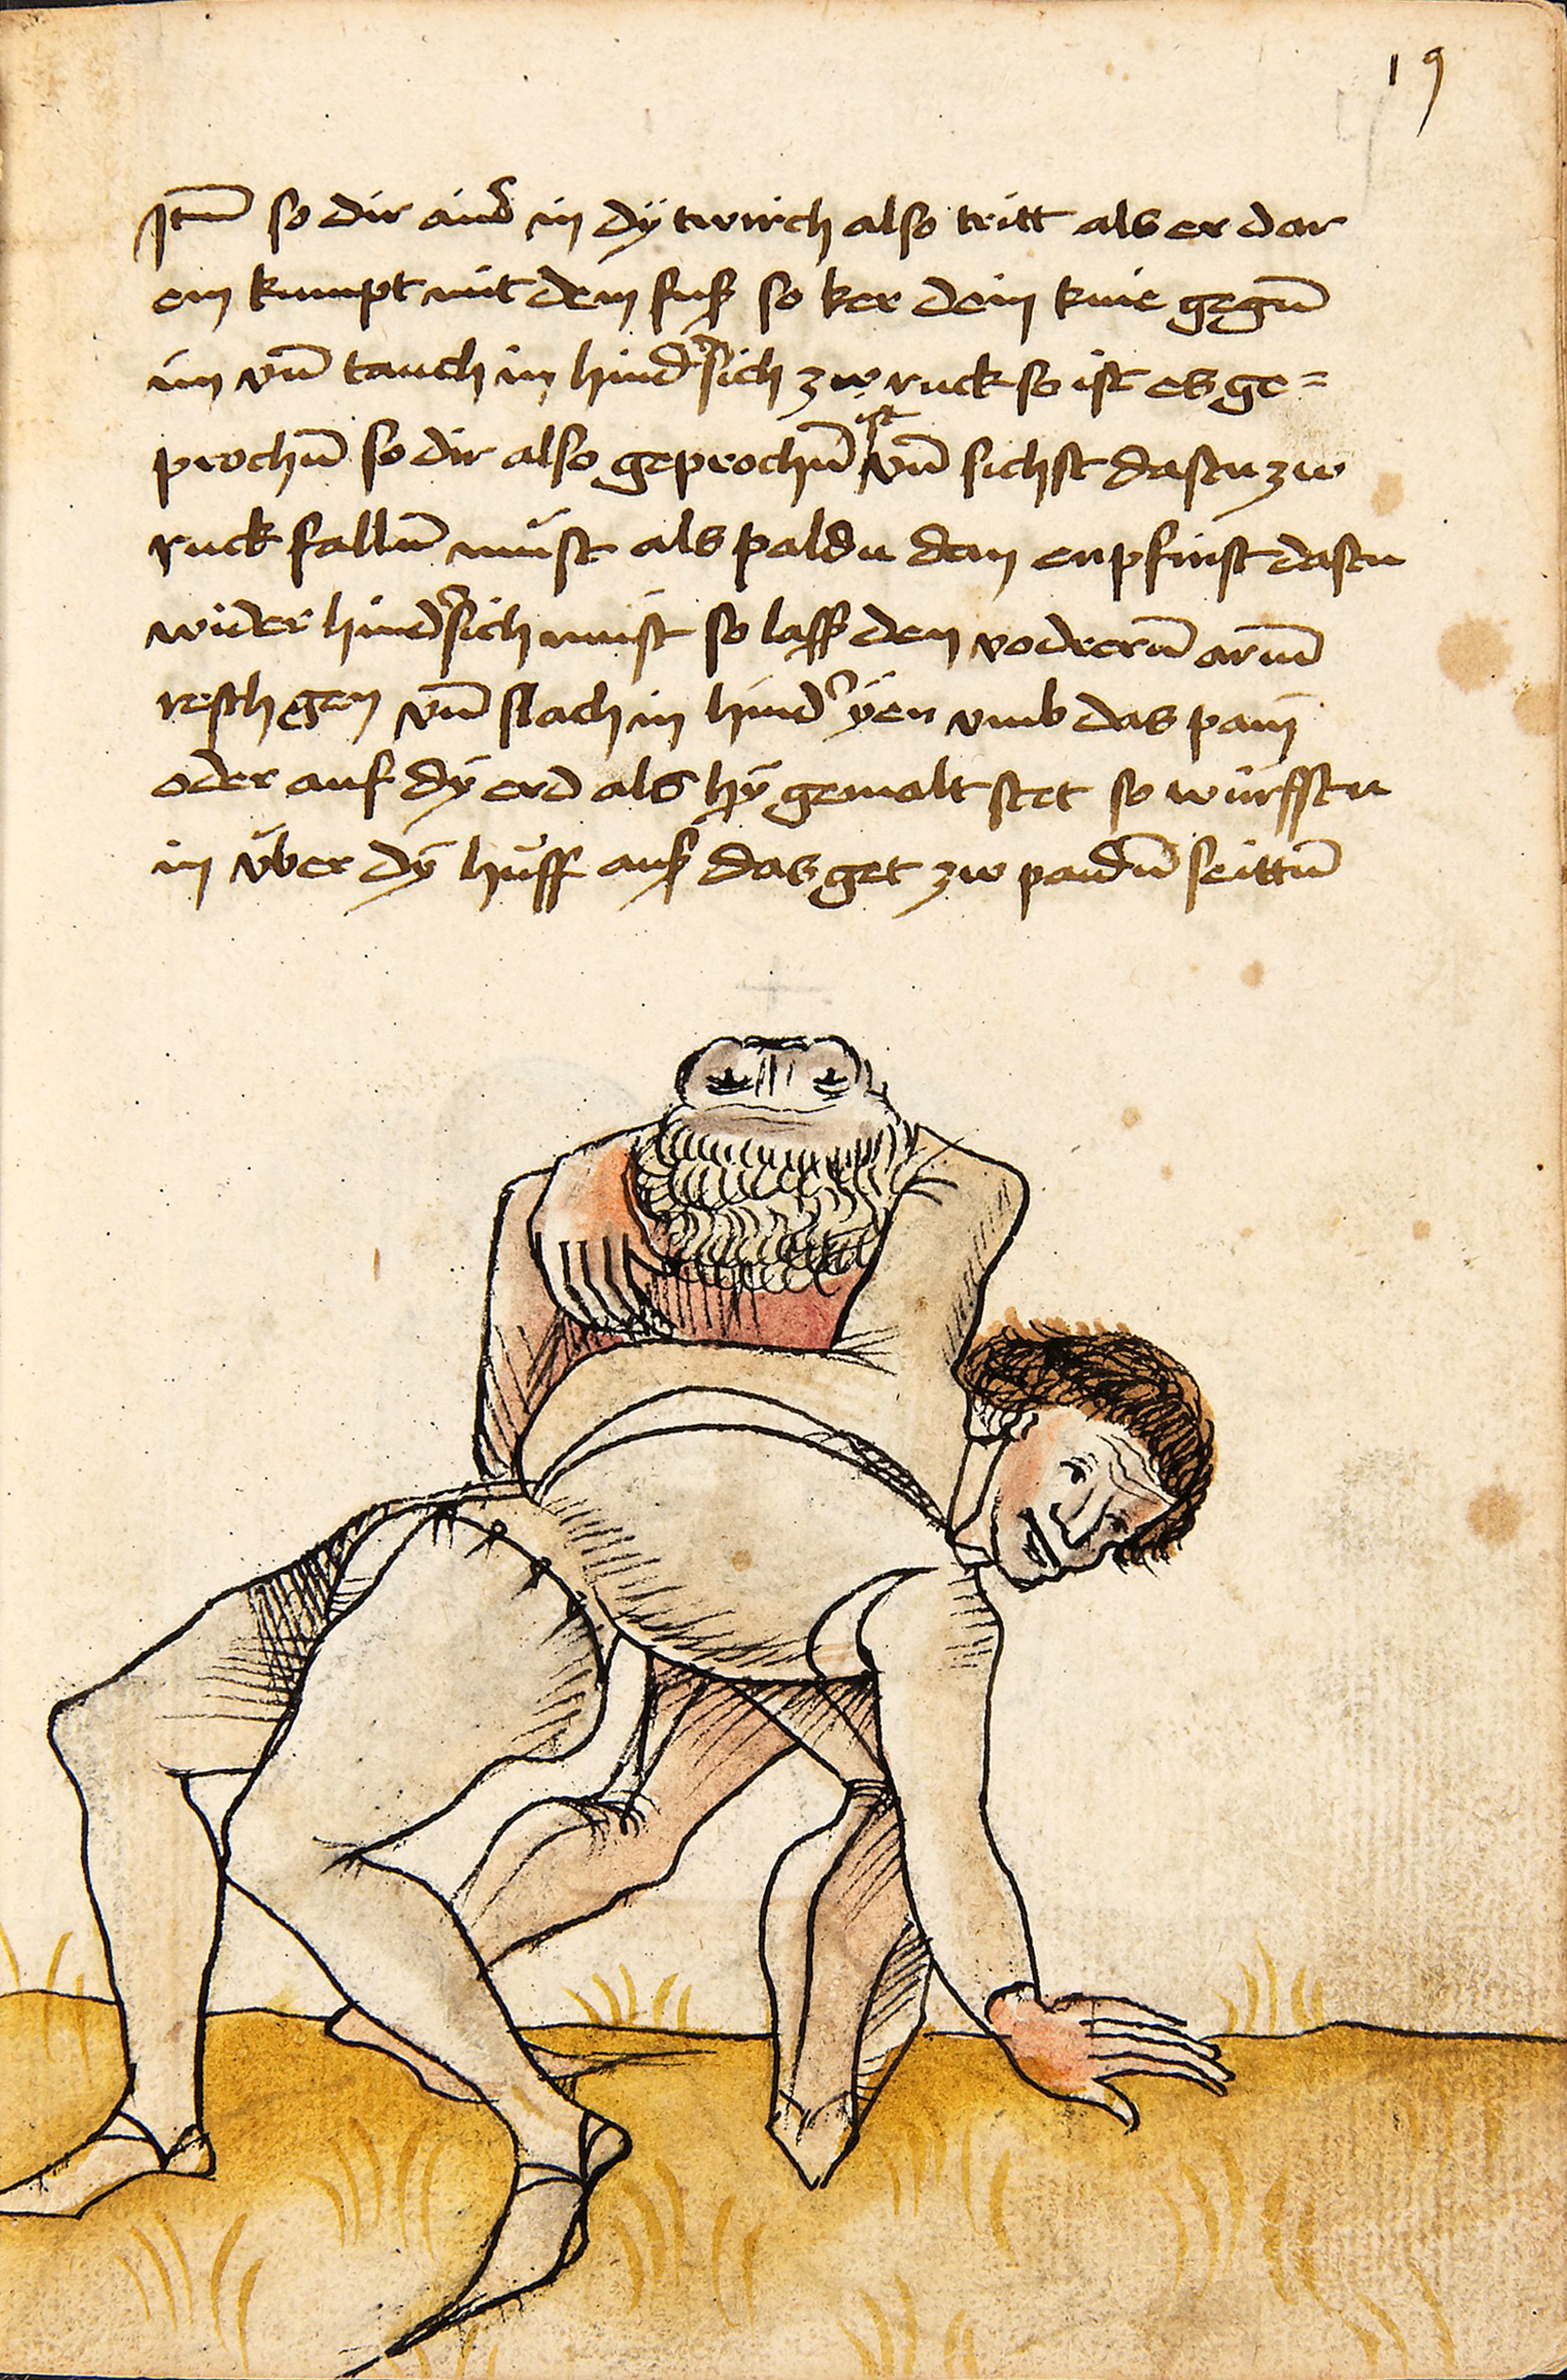 19
Jtm̄ so dir aind͛ in dÿ twirch also tritt als er dar
ein kumpt mit dem fuß so ker dein knie gegū
im vn̄ tauch in hind͛sich zw ruck so ist es ge=
prochn̄ so dir also geprochn̄ ist vn̄ sichst dastu zw
ruck falln̄ müst als pald du dan enpfinst dastu
wider hind͛sich must so lass den vodrern̄ arm̄
resch gen vn̄ slach in hind͛ ÿen vmb das pain
oder auf dÿ erd als hÿ gemalt stet so würfstu
in über dÿ huff auß das get zw paidn̄ seittn̄